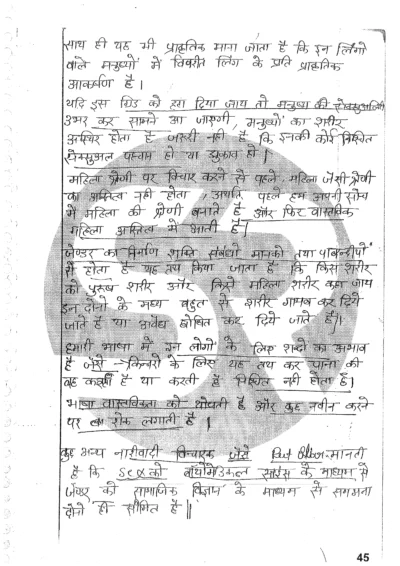 साथ ही यह भी प्राकृतिक माना जाता है कि इन लिंगो
वाले मनुष्यों में विपरीत लिंग के प्रति प्राकृतिक
आकर्षण है।
यदि इस ग्रिड को हटा दिया जाय तो मनुष्य की
उभर कर सामने आ जाएगी, मनुष्यों का शरीर
अस्थिर होता है जरूरी नही है कि इनकी कोई निश्चित
सेक्सुअल पहचान हो या झुकाव हो।
महिला श्रेणी पर विचार करने से पहले महिला जैसी श्रेणी
का अस्तित्व नही होता, अर्थात पहले हम अपनी सोच
में महिला की श्रेणी बनाते है और फिर वास्तविक
महिला अस्तित्व में आती है।
जेण्डर का निर्माण शक्ति संबंधो मानको तथा पाबन्दीयों
से होता है यह तय किया जाता है कि किस शरीर
को पुरुष शरीर और किसे महिला शरीर कहा जाय
इन दोनो के मध्य बहुत से शरीर गायब कर दिये
जाते है या अवैध घोषित कर दिये जाते है।
हमारी भाषा में इन लोगो के लिए शब्दो का अभाव
है जैसे किन्नरो के लिए यह तय कर पाना की
वह करता है या करती है निश्चित नही होता है।
भाषा वास्तविकता को थोपती है और कुछ नवीन करने
पर रोक लगाती है।
कुछ अन्य नारीवादी विचारक जैसे मानती
है कि Sex को बायोमेडिकल साइंस के माध्यम से
जेण्डर को सामाजिक विज्ञान के माध्यम से समझना
दोनो ही सीमित है॥
45